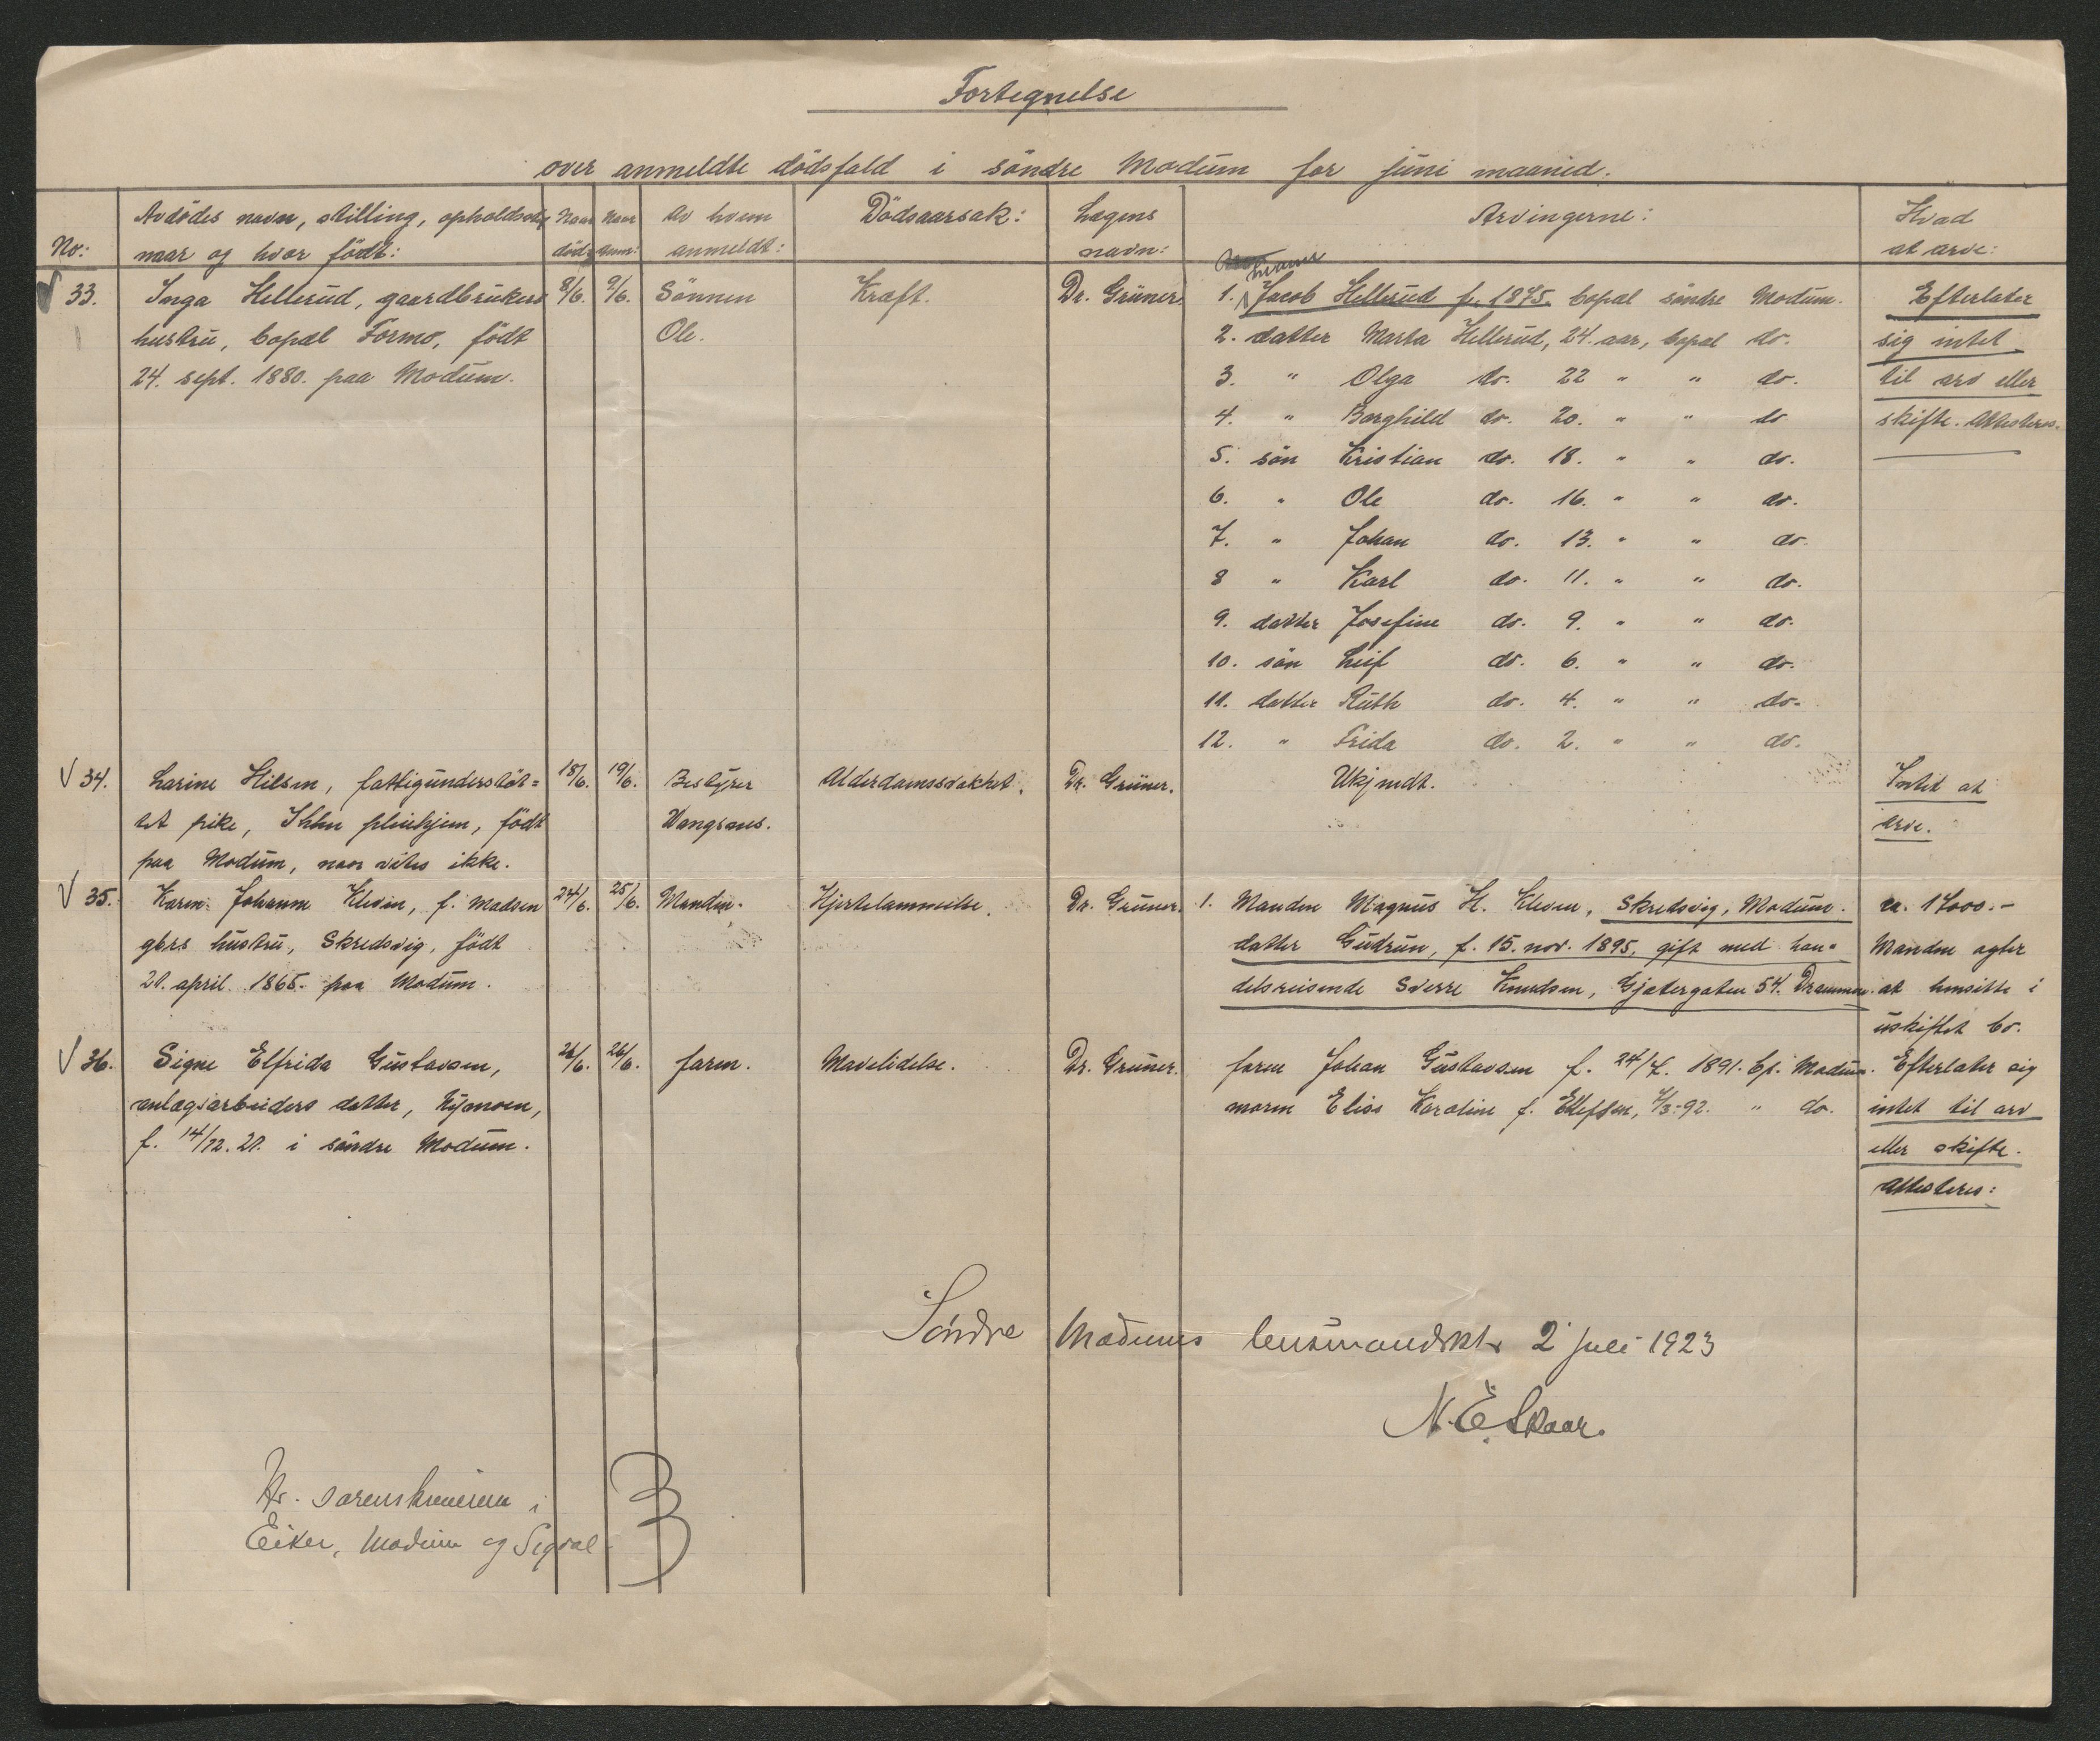 Fortegnelse
over anmeldte dödsfald i söndre Modum for juni maaned.
No:
Avdödes navn, stilling, opholdssted
naar og hvor födt:
Naar
död:
Naar
anm:
Av hvem
anmeldt:
Dödsaarsak:
Lægens
navn:
Arvingerne:
Hvad
at arve:
33.
Inga Hellerud, gaardbrukers
hustru, bopæl Formo, födt
24. sept. 1880. paa Modum.
8/6.
9/6.
Sönnen
Ole.
Kræft.
Dr. Grüner.
1. Jacob Hellerud f. 1875. bopæl söndre Modum.
2. datter Marta Hellerud, 24. aar, bopæl do.
3. " Olga do. 22 " " do.
4. " Borghild do. 20. " " do
5. sön Kristian do. 18. " " do.
6. " Ole do. 16. " " do.
7. " Johan do. 13. " " do.
8 " Karl do. 11. " " do.
9. datter Josefine do. 9. " " do.
10. sön Leif do. 6. " " do.
11. datter Ruth do. 4. " " do.
12. " Frida do. 2. " " do.
Efterlater
sig intet
til arv eller
skifte. Attesteres.
V 34.
Larine Hilsen, fattigunderstöt=
tet pike, pleiehjem, födt
paa Modum, naar vites ikke.
18/6.
19/6.
Bestyrer
Vangsnes.
Alderdomssvakhet.
Dr. Grüner.
Ukjendt.
Intet at
arve.
V 35.
Karen Johanne Kleven, f. Madsen
gbrs hustru, Skredsvig, födt
21. april 1865. paa Modum.
24/6.
25/6.
Manden.
Hjertelammelse.
Dr. Grüner.
1. Manden Magnus H. Kleven, Skredsvig, Modum.
datter Gudrun, f. 15. nov. 1895, gift med han=
delsreisende Sverre Knudsen, Gjetergaten 54. Drammen.
ca. 17000.-
Manden agter
at hensitte i
uskiftet bo.
V 36.
Signe Elfrida Gustavsen,
anlægsarbeiders datter, Nymoen,
f. 14/12. 21. i söndre Modum.
26/6.
26/6.
faren.
Mavelidelse.
Dr. Grüner.
faren Johan Gustavsen f. 24/7. 1891. bp. Modum.
moren Elise Karoline f. Ellefsen, 4/3-92. " do.
Efterlater sig
intet til arv
eller skifte.
Attesteres:
Söndre Modums lensmandskt. 2 juli 1923
N. E. Skaar.
Hr. sorenskriveren i
Eiker, Modum og Sigdal